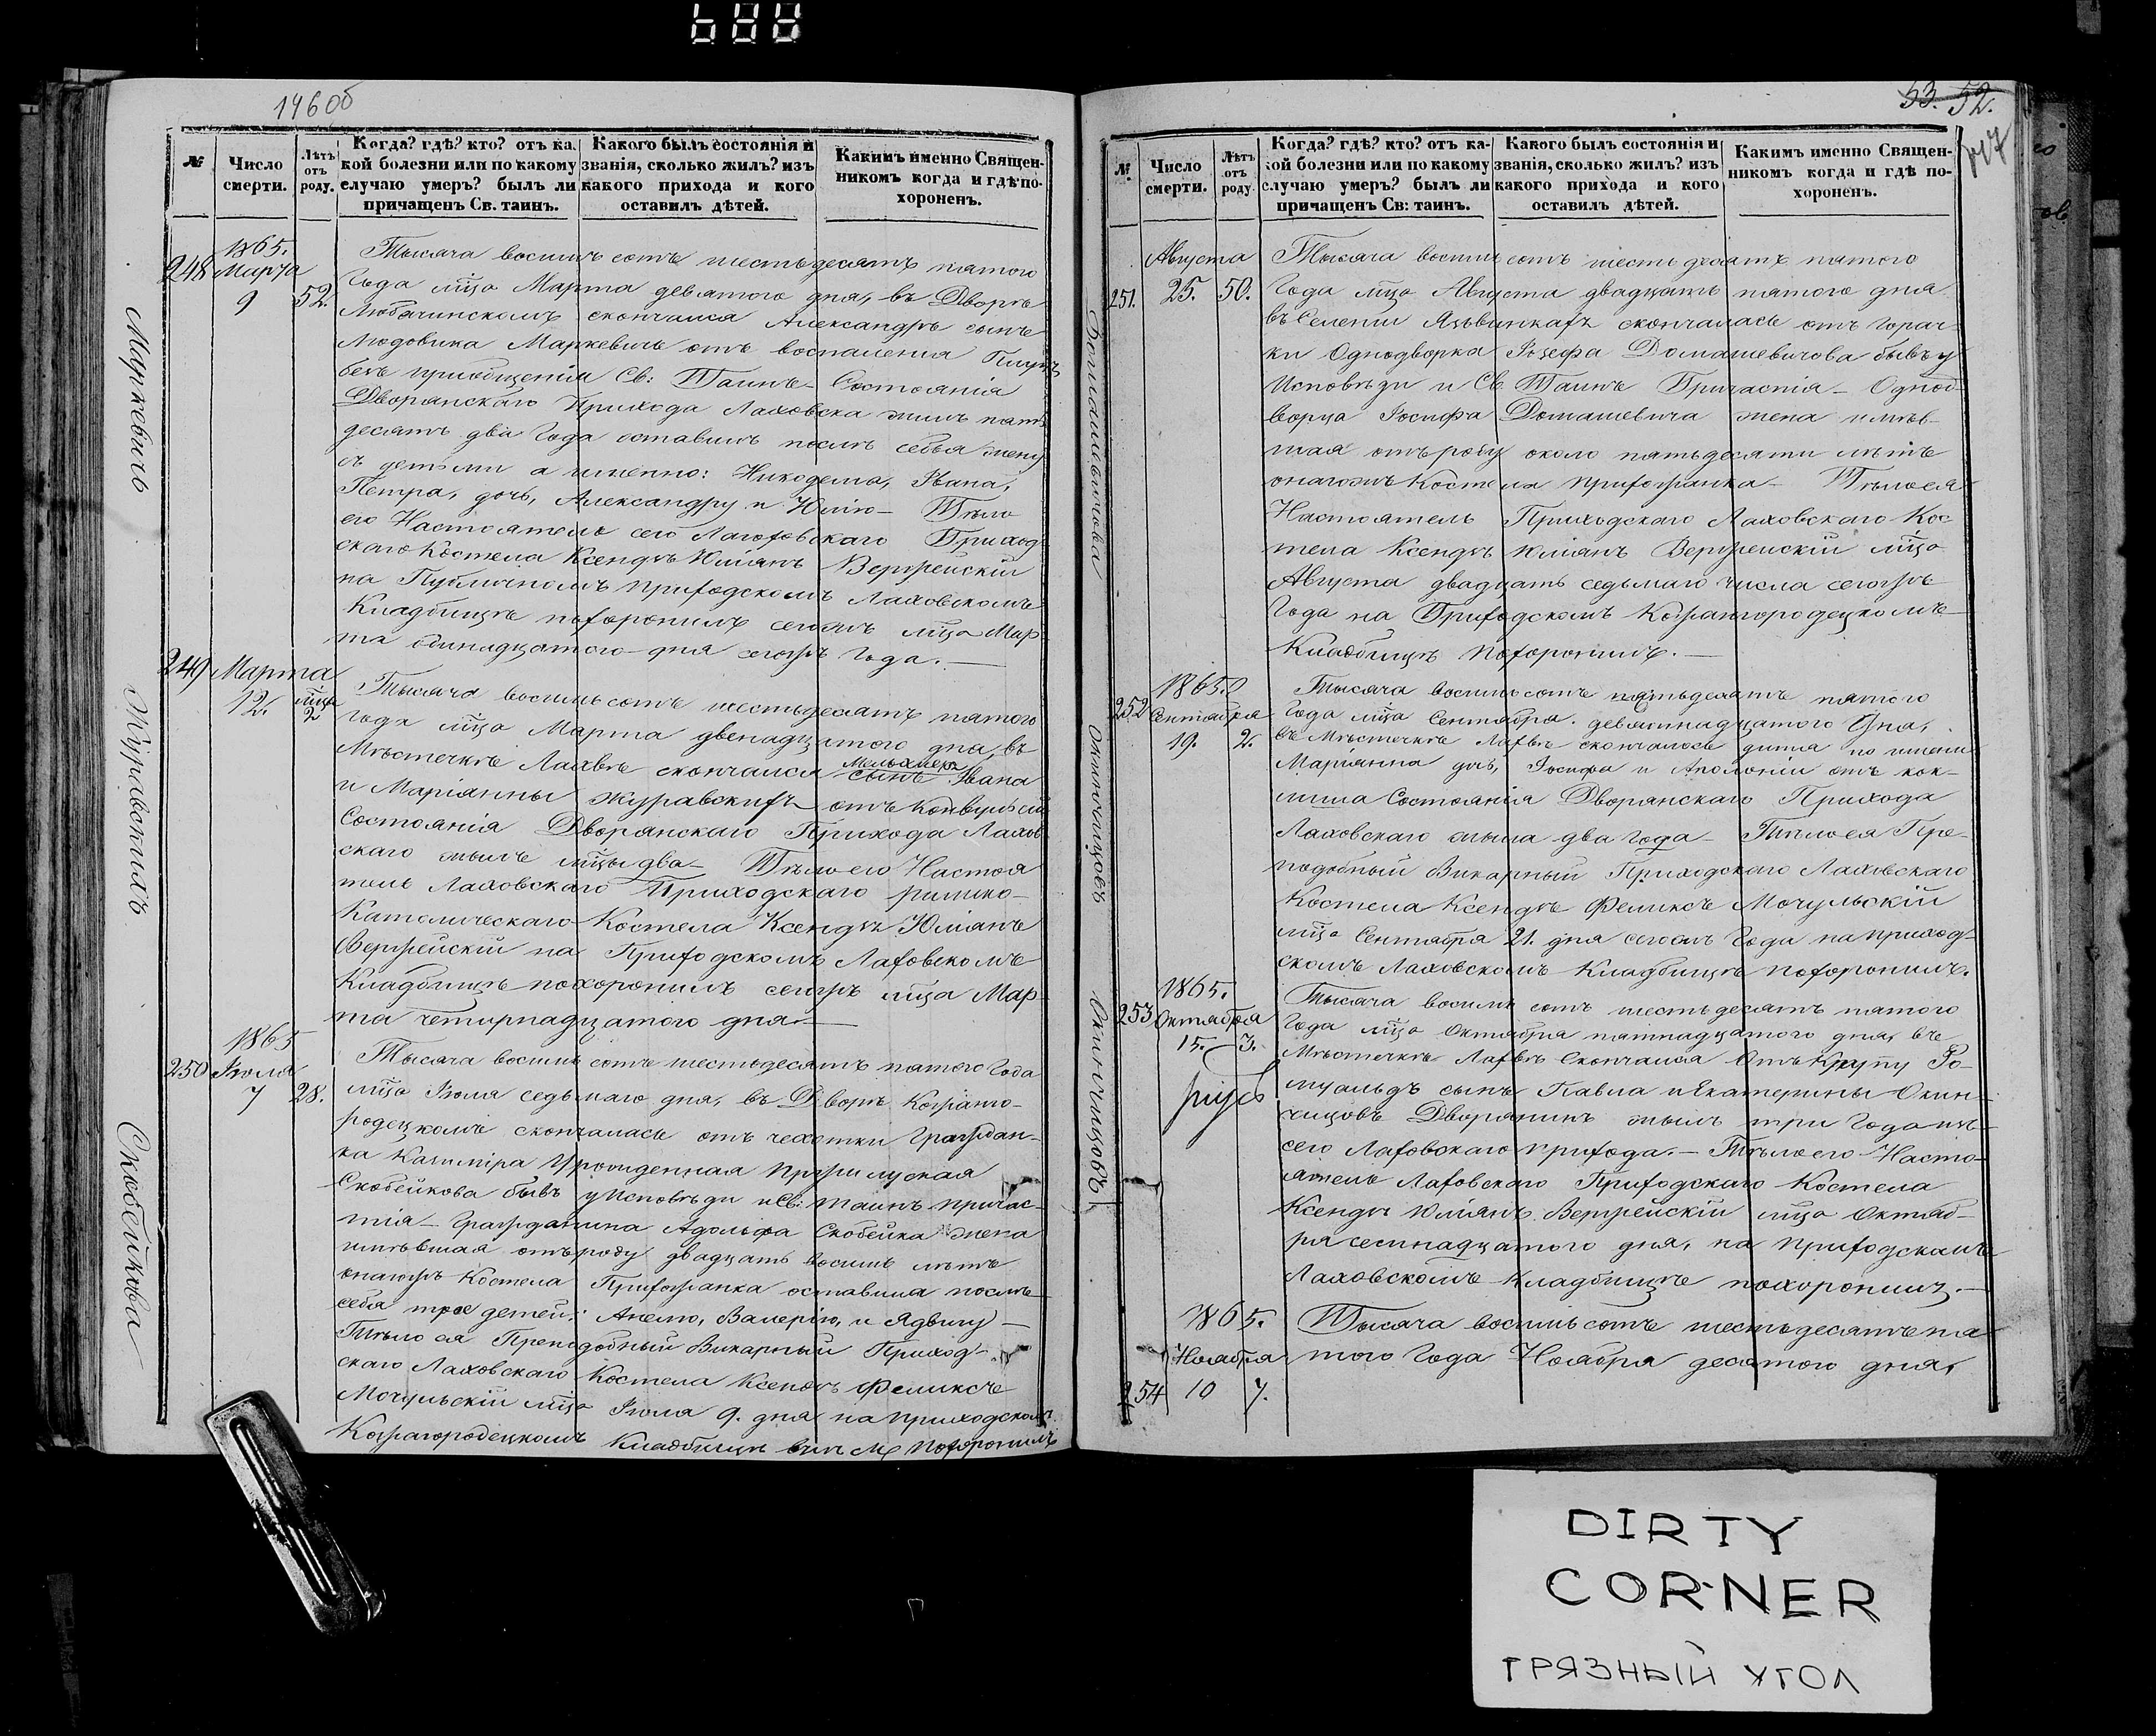 146 об
№
Число смерти.
Лѣтъ отъ роду.
Когда? гдѣ? кто? отъ ка-
кой болезни или по какому
случаю умеръ? былъ ли
причащенъ Св. таинъ.
Какого былъ состоянія и
званія, сколько жилъ? изъ
какого прихода и кого
оставилъ дѣтей.
Какимъ именно Священ-
никомъ когда и гдѣ по-
хороненъ.
Маркевичъ
248
1865.
Марта
9
52.
Тысяча восимъ сотъ шестьдесятъ пятого
Года мца Марта девятого дня, въ Дворѣ
скончался Александръ сынъ
Людовика Маркевичъ отъ воспаления
безъ приобщенія Св: Таинъ - Состоянія
Дворянскаго Прихода Лаховска жилъ пять
десятъ два Года оставилъ послѣ себья жену
съ детьми а именно: Никодема, Ивана,
Петра, дочь, Александру и Юлію - Тѣло
его Настоятель сего Лаховскаго Приход
скаго Костела Ксендзъ Юліянъ Вержейскій
на Публичномъ приходскомъ Лаховскомъ
Кладбищѣ похоронилъ сегожъ мца Мар-
та одинадцатого дня сегожъ Года. —
Журавскихъ
249
Марта
12.
мца
2
Тысяча восимьсотъ шестьдесятъ пятого
года мца Марта двенадцатого дня, въ
Мѣстечкѣ Лахвѣ скончался Мельхиеръ сынъ Ивана
и Маріянны Журавскихъ отъ Конвульсій
Состоянія Дворянскаго Прихода Лахов
скаго жылъ мцы два - Тѣло его Настоя
тель Лаховскаго Приходскаго римско-
Католическаго Костела Ксендзъ Юліянъ
Вержейскій на Приходскомъ Лаховскомъ
Кладбищѣ похоронилъ сегожъ мца Мар-
та четырнадцатого дня —
Скобейкова
1865
250
Іюля
7
28.
Тысяча восимь сотъ шестьдесятъ пятого Года
мца Іюля седьмаго дня, въ Дворѣ Кожанго-
родецкомъ скончалась отъ чехотки Граждан-
ка Казиміра Урожденная
Скобейкова бывъ у Исповѣди и Св: таинъ причас-
тія - Гражданина Адольфа Скобейка жена
имѣвшая отъ роду двадцать восимъ лѣтъ
онагожъ Костела Прихожанка оставила послѣ
себя трое детей: Анелю, Валерію, и Ядвигу —
Тѣло ея Преподобный Викарный Приход-
скаго Лаховскаго Костела Ксендзъ Феликсъ
Мочульскій мца Іюля 9. дня на приходском
Кожангородецкомъ Кладбищѣ похоронилъ
53. 52.
147
№
Число смерти.
Лѣтъ отъ роду.
Когда? гдѣ? кто? отъ ка-
кой болезни или по какому
случаю умеръ? былъ ли
причащенъ Св: таинъ.
Какого былъ состоянія и
званія, сколько жилъ? изъ
какого прихода и кого
оставилъ дѣтей.
Какимъ именно Священ-
никомъ когда и гдѣ по-
хороненъ.
Домашевичова
Августа
251.
25.
50.
Тысяча восимь сотъ шестьдесятъ пятого
Года мца Августа двадцать пятого дня
въ Селеніи Язьвинкахъ скончалась отъ Горяч-
ки Однодворка Іозефа Домашевичова бывъ у
Исповѣди и Св Таинъ Причастія - Однод-
ворца Іосифа Домашевича жена имѣв-
шая отъ роду около пятьдесяти лѣтъ
онагожъ Костела прихожанка - Тѣло ея
Настоятель Приходскаго Лаховскаго Кос
тела Ксендзъ Юліянъ Вержейскій мца
Августа двадцать седьмаго числа сегожъ
Года на Приходскомъ Кожангородецкомъ
Кладбищѣ похоронилъ. —
Окинчицовъ
1865.
252
Сентября
19.
2.
Тысяча восимьсотъ пятого
Года мца Сентября девятнадцатого Дня,
въ Мѣстечкѣ Лахвѣ скончалось дитя по имени
Маріянна дочь, Іосифа и Аполоніи отъ кок-
люша Состоянія Дворянскаго Прихода
Лаховскаго жыла два года - Тѣло ея Пре-
подобный Викарный Приходскаго Лаховскаго
Костела Ксендзъ Феликсъ Мочульскій
мца Сентября 21. дня сегожъ Года на приход-
скомъ Лаховскомъ Кладбищѣ похоронилъ.
Окинчицовъ
1865.
253
Октября
15.
3.
Тысяча восимь сотъ шестьдесятъ пятого
Года мца Октября пятнадцатого дня, въ
Мѣстечкѣ Лахвѣ Скончался Отъ Крупу Ро-
муальдъ сынъ Павла и Екатерины Окин-
чицовъ Дворянинъ жылъ три Года изъ
сего Лаховскаго прихода. - Тѣло его Насто-
ятель Лаховскаго Приходскаго Костела
Ксендзъ Юліянъ Вержейскій мца Октяб-
ря семнадцатого дня, на приходскомъ
Лаховскомъ Кладбищѣ похоронилъ. —
1865.
Ноября
254
10
7.
Тысяча восимьсотъ шестьдесятъ пя
того Года Ноября десятого дня,
DIRTY
CORNER
ГРЯЗНЫЙ УГОЛ